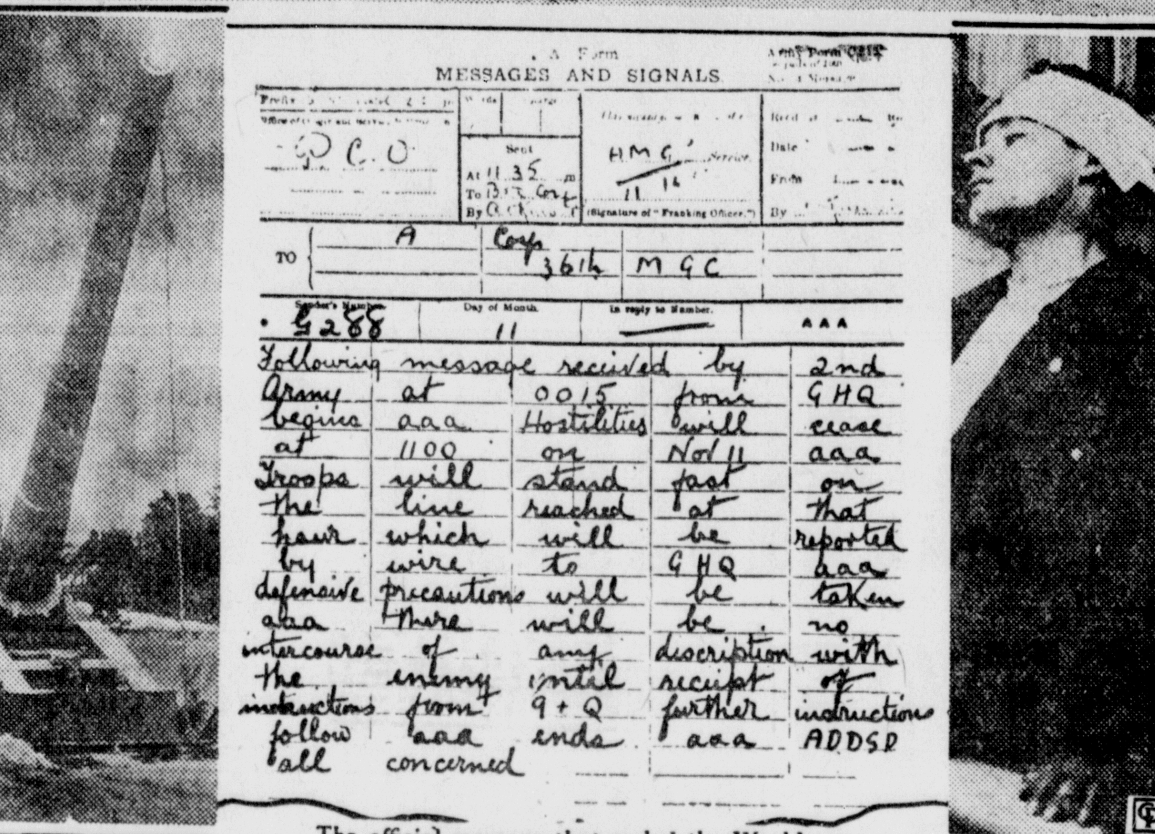 "A" Form
Army Form
MESSAGES AND SIGNALS.
Prefix
Words
Sent
At 11 35 m
To
By
HMG
Service.
11 16
(Signature of "Franking Officer.")
Date
From
By
TO
A Corps
36th MGC
Sender's Number.
Day of Month.
In reply to Number.
G288
11
AAA
Following message received by 2nd
Army at 0015 from GHQ
begins aaa Hostilities will cease
at 1100 on Nov 11 aaa
Troops will stand fast on
the line reached at that
hour which will be reported
by wire to GHQ aaa
defensive precautions will be taken
aaa There will be no
intercourse of any description with
the enemy until receipt of
instructions from G + Q further instructions
follow aaa ends aaa ADDSD
all concerned